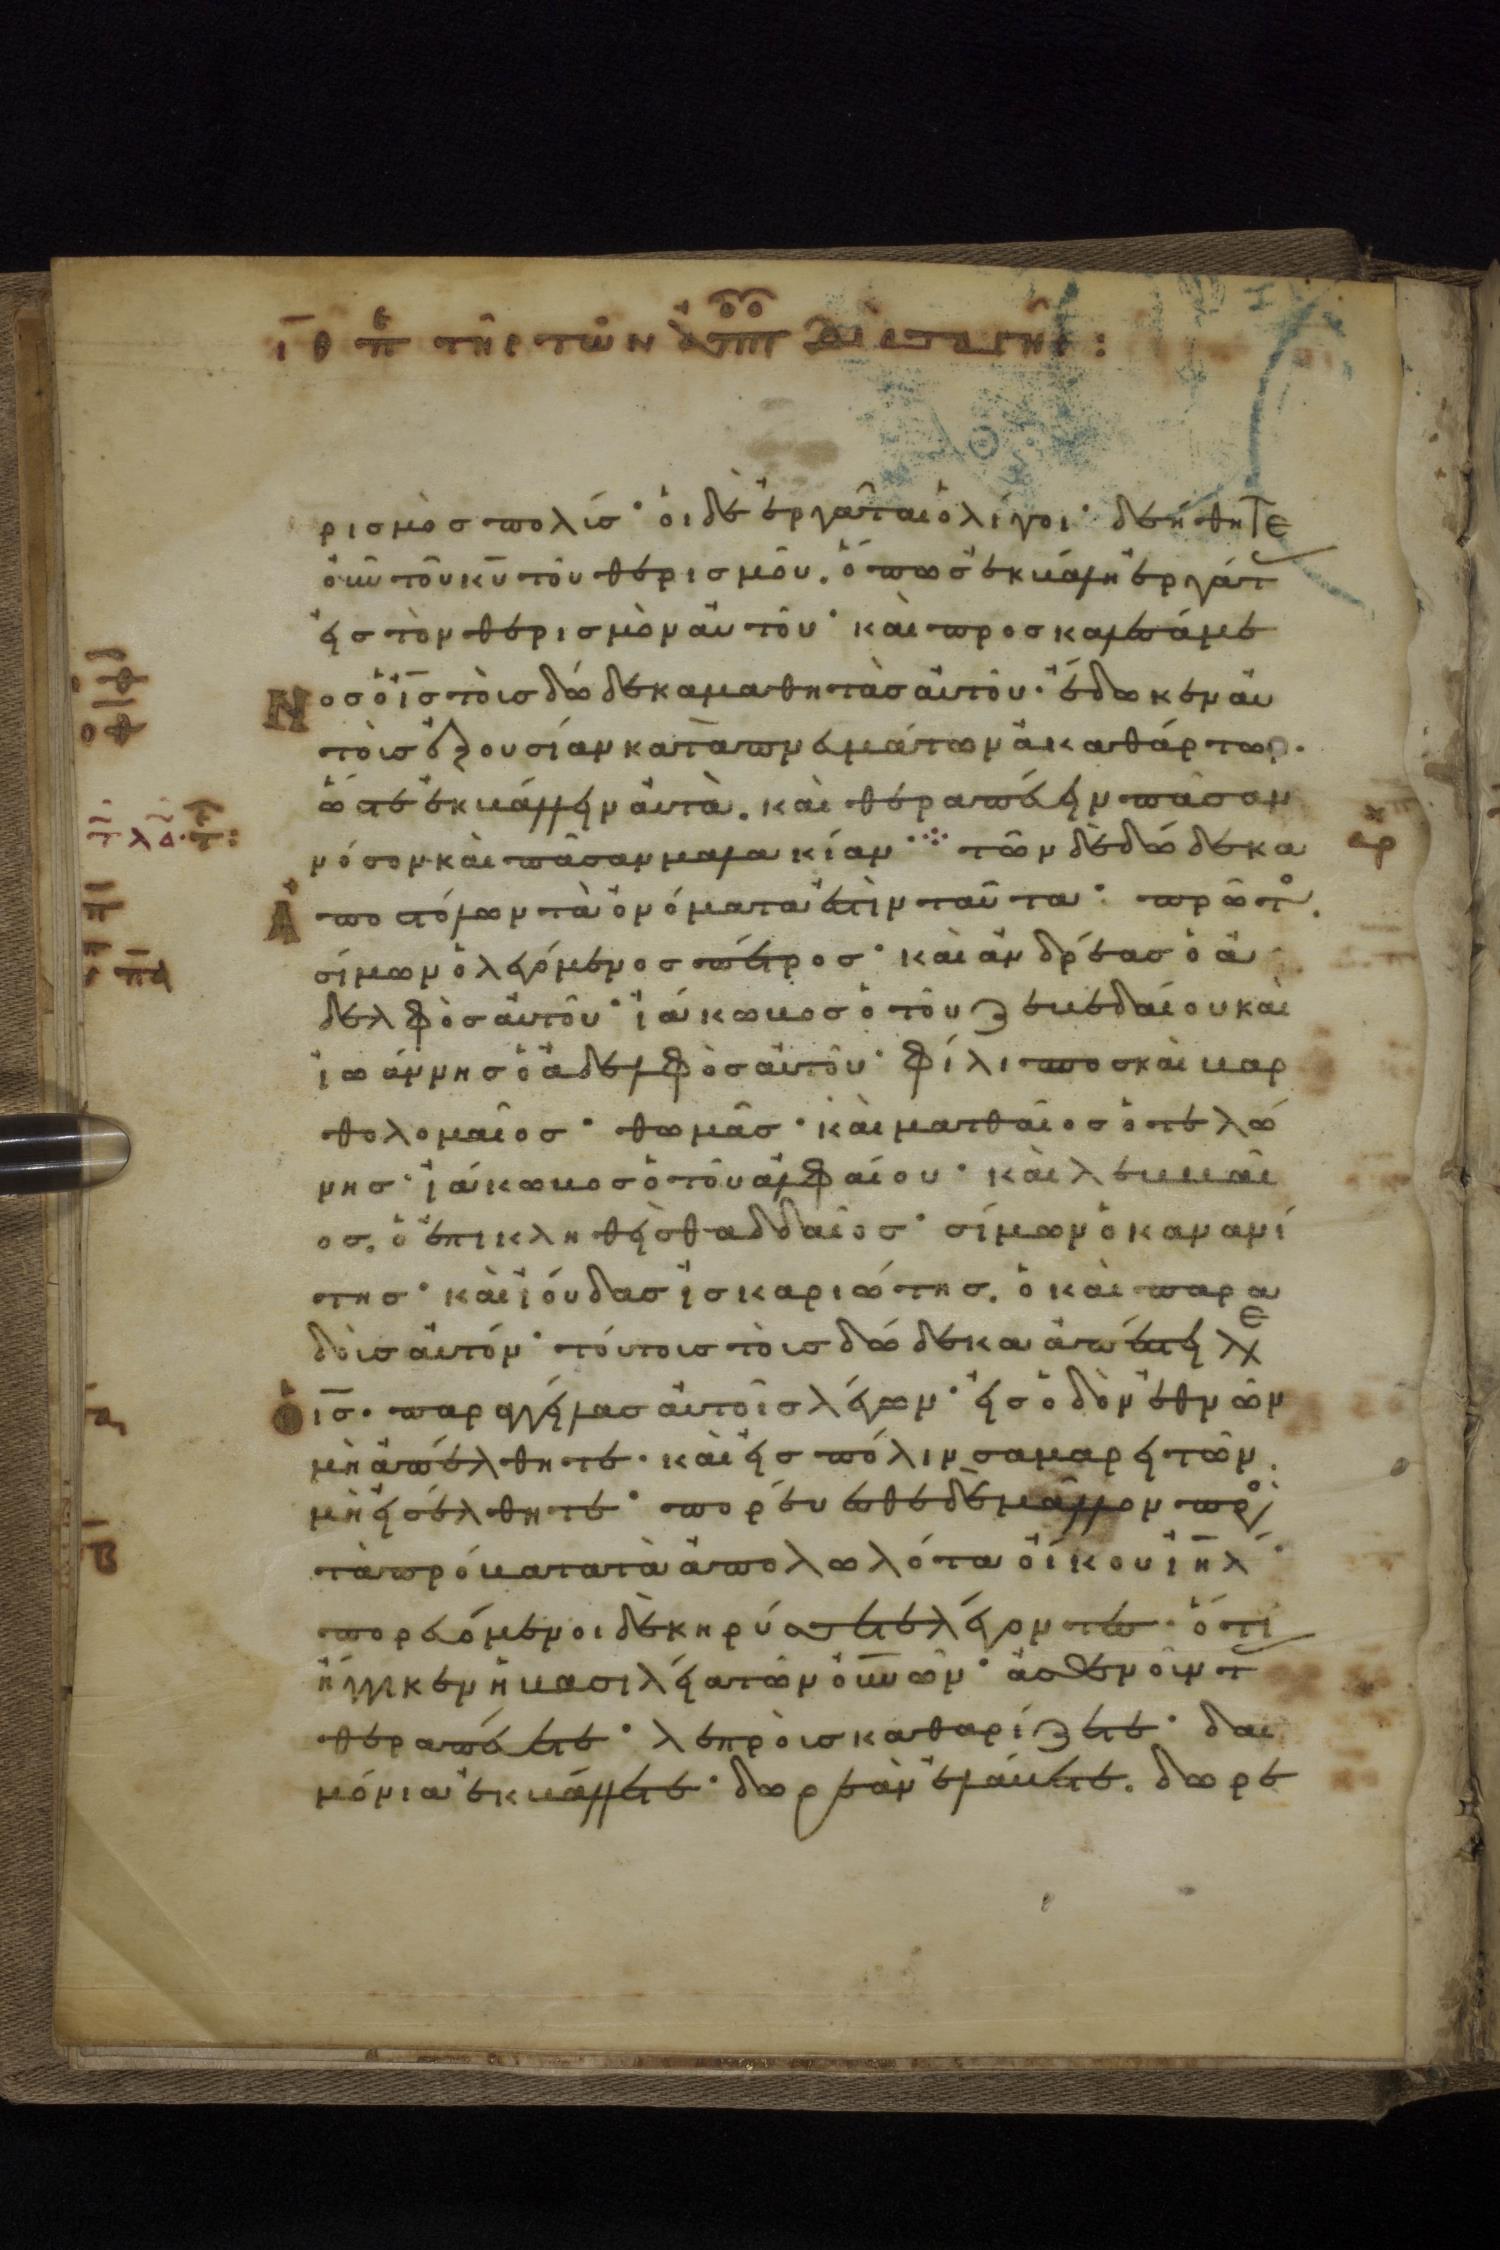 ιθ π τῆς τῶν ἀπο διαταγῆς :
ρισμὸσ πολίσ· ὁι δὲ ἐργάται ὀλίγοι· δεήθητε
ὀυν τοῦ κυ τοῦ θερισμοῦ. ὅπωσ ἐκβάλη ἐργάτ
ἐισ τὸν θερισμὸν αὐτοῦ· καὶ προσκαλεσάμε
νοσ ὁ ισ τοὺσ δώδεκα μαθητὰσ αὐτοῦ· ἔδωκεν αυ
τοῖσ ἐξουσίαν κατὰ πνευμάτων ἀκαθάρτων.
ὥστε ἐκβάλλειν αὐτὰ. καὶ θεραπέυειν πᾶσαν
νόσον καὶ πᾶσαν μαλακίαν· τῶν δὲ δώδεκα
Ἀποστόλων τὰ ὀνόματα ἐστὶν ταῦτα· πρῶτο.
σίμων ὁ λεγόμενοσ πέτροσ· καὶ ἀνδρέασ ὁ ἀ
δελφὸσ αὐτοῦ· ἰάκωβοσ ὁ τοῦ ζεβεδαίου καὶ
ἰωάννησ ὁ ἀδελφὸσ αὐτοῦ· φίλιποσ καὶ βαρ
θολομαῖοσ· θωμᾶσ· καὶ ματθαῖοσ ὁ τελώ
νησ· ἰάκωβοσ ὁ τοῦ ἀλφαίου· καὶ λεββαῖ
οσ. ὁ ἐπικληθεὶσ θαδδαῖοσ· σίμων ὁ κανανί
τησ· καὶ ἰούδασ ἰσκαριώτησ. ὁ καὶ παρα
δοὺσ αὐτόν· τούτουσ τοὺσ δώδεκα ἀπέστειλε
Ὁ ισ· παραγγείλασ αὐτοῖσ λέγων· εἰσ ὁδὸν ἐθνῶν
μὴ ἀπέλθητε· καὶ εἰσ πόλιν σαμαρειτῶν.
μὴ εἰσέλθητε· πορέυεσθε δὲ μᾶλλον προσ
τὰ πρόβατα τὰ ἀπολωλότα οἴκου ιηλ·
πορευόμενοι δὲ κηρύσσετε λέγοντεσ· ὅτι
ἤγγικεν ἡ βασιλεία τῶν ουνῶν· ἀσθενοῦντ
θεραπέυετε· λεπροὺσ καθαρίζετε· δαι
μόνια ἐκβάλλετε· δωρεὰν ἐλάβετε. δωρε